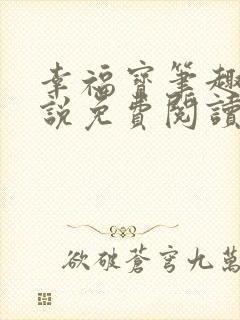 幸福寶筆趣
說免費閱讀
欲破蒼穹九萬